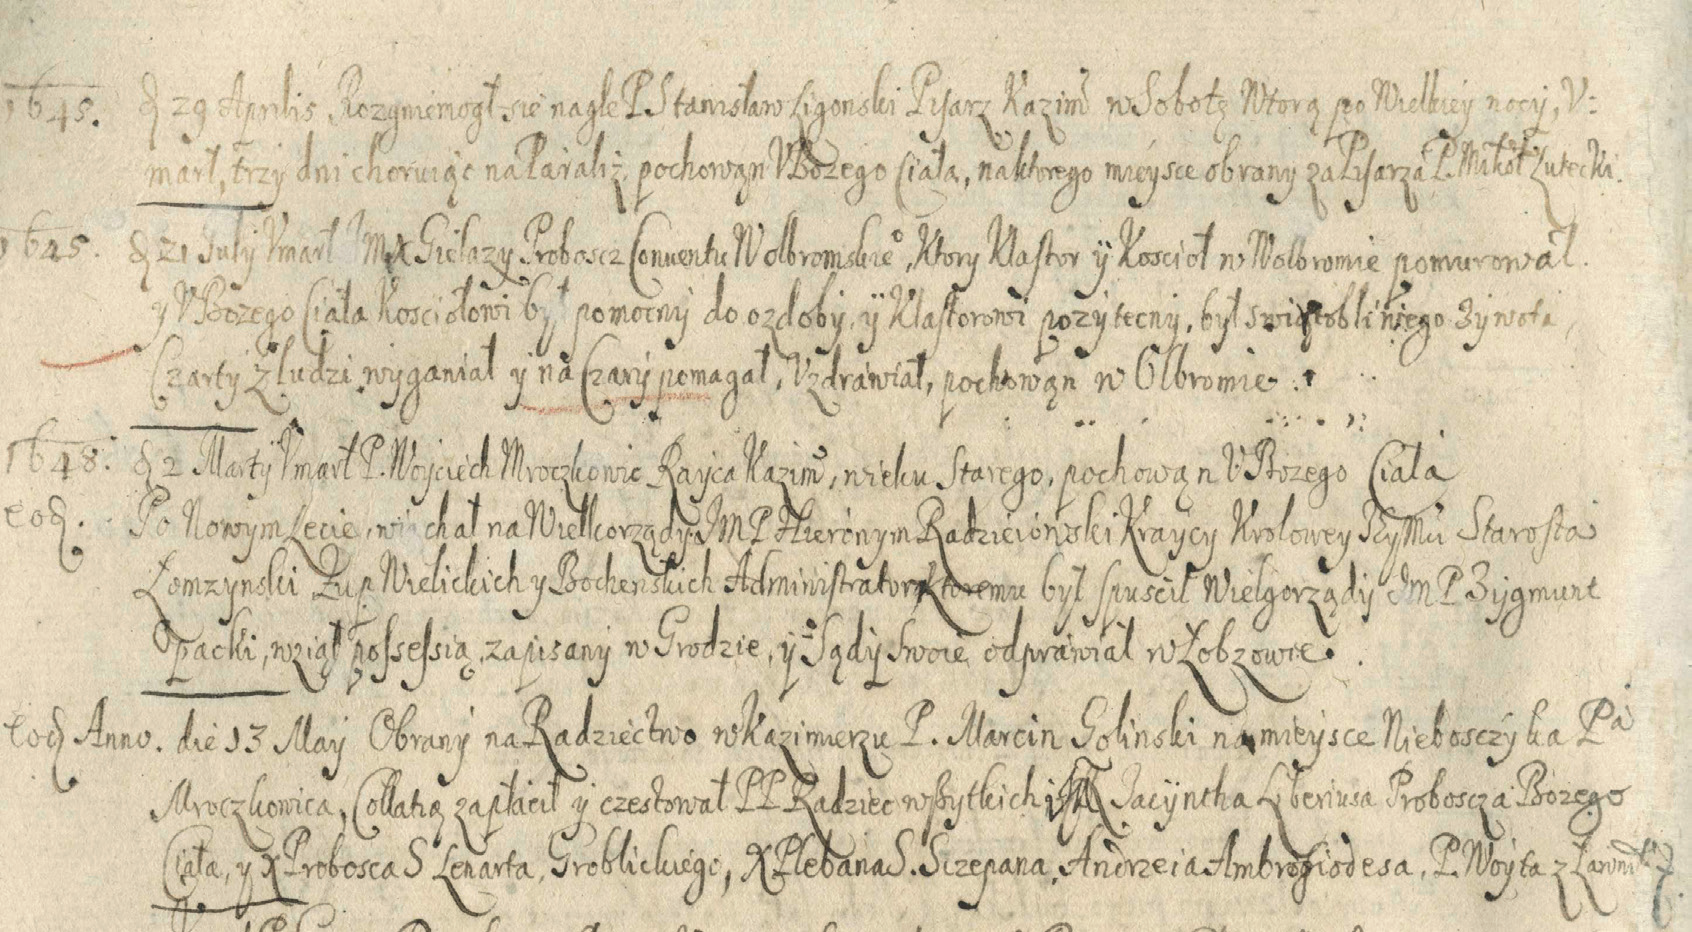 1645. d 29 Aprilis Rozgniemogł się nagle P Stanisław Ligonski Pisarz Kazim w Sobotę Wtorą po Wielkiey nocy, V=
marł, trzy dni choruiąc na Paraliż, pochowąn V Bozego Ciała, na ktorego mieysce obrany za Pisarza P. Mikoł Zutecki.
1645. d 21 July Vmarł IMX Gielazy Proboscz Conuentu Wolbromskie°, Ktory Klastor ÿ Koscioł w Wolbromie pomurował.
y V Bozego Ciała Kosciołowi był pomocny do ozdoby, ÿ Klastorowi pozytecny, był swiątobliwego Zywota
Czarty z ludzi wyganiał y na Czary pomagał, Vzdrawiał, pochowąn w Olbromie.
1648. d 2 Marty Vmarł P. Woyciech Mroczkowic Rayca Kazim, wieku Starego, pochowąn V Bozego Ciała
eod. Po Nowym Lecie, wiechał na Wielkorządy IMP Hieronym Radzieiowski Kraycy Krolowey Starosta
Łomzynski Zup Wielickich y Bochenskich Administrator, ktoremu był spuscił Wielgorządy IMP Zygmunt
Opacki, wziął possessią, zapisany w Grodzie, y Sądy swoie odprawiał w Łobzowie.
eod Anno. die 13 May Obrany na Radziectwo w Kazimierzu P. Marcin Golinski na mieysce Nieboszczyka Pa
Mroczkowica, Collatią zapłacił y czestował PP Radziec wszytkich Jacyntha Liberiusa Proboscza Bozego
Ciała, y X Probosca S Lenarta, Groblickiego, X Plebana S. Sczepana, Andrzeia Ambrogiodesa, P. Woyta z